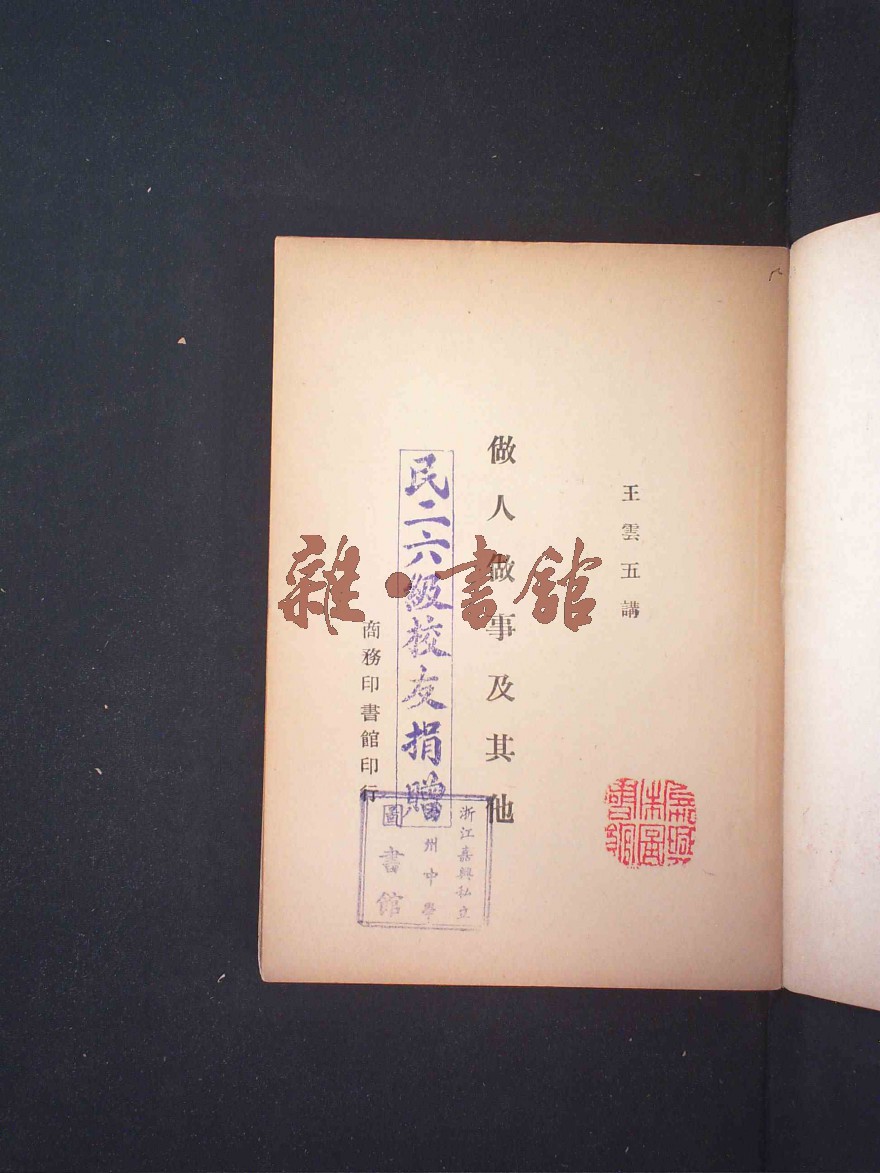 王雲五講
做人做事及其他
民二六級校友捐贈
商務印書館印行
浙江嘉興私立
州中學
圖書館
雜·書館